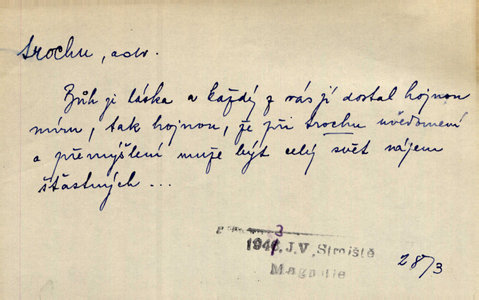 trochu, adv.
Bůh je láska a každý z vás jí dostal hojnou
míru, tak hojnou, že při trochu uvědomění
a přemýšlení může být celý svět rájem
šťastných ...
194 J.V. Strniště
28/3